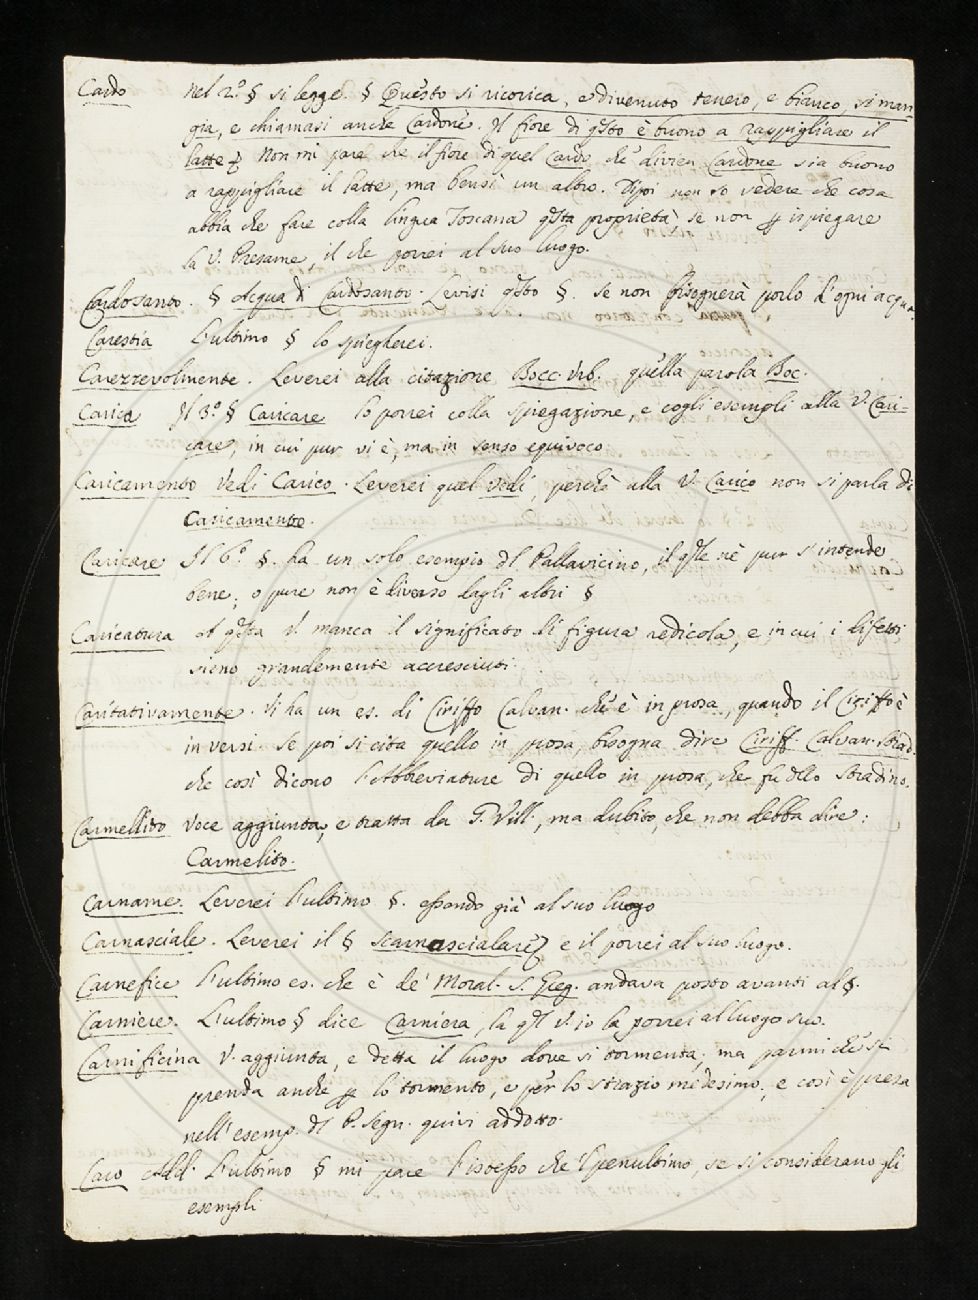 Cardo Nel 2.° § si legge. § Questo si ricorica, e divenuto tenero, e bianco, si man
gia, e chiamasi anche Cardone. Il fiore di qsto è buono a rappigliare il
latte. Non mi pare che il fiore di quel Cardo che divien Cardone sia buono
a rappigliare il latte, ma bensì un altro. Dipoi non so vedere che cosa
abbia che fare colla lingua Toscana qsta proprietà se non p ispiegare
la V. Presame, il che porrei al suo luogo.
Cardosanto. § Acqua di Cardosanto. Levisi qsto §. se non bisognerà porlo d'ogni acqua.
Carestia L'ultimo § lo spiegherei.
Carezzevolmente. Leverei alla citazione Bocc. Urb. quella parola Boc.
Carica Il 3.° § Caricare lo porrei colla spiegazione, e cogli esempli alla V. Cari-
care, in cui pur vi è, ma in senso equivoco
Caricamento Vedi Carico. Leverei quel vedi, perchè alla V. Carico non si parla di
Caricamento.
Caricare Il 6.° §. ha un solo esempio dl Pallavicino, il qle nè pur s'intende
bene; o pure non è diverso dagli altri §
Caricatura a qsta V. manca il significato di figura redicola, e in cui i difetti
sieno grandemente accresciuti.
Caritativamente. Vi ha un es. di Ciriffo Calvan. che è in prosa, quando il Ciriffo è
in versi. Se poi si cita quello in prosa, bisogna dire Ciriff. Calvan. Strad.
che così dicono l'Abbreviature di quello in prosa, che fu dllo Stradino.
Carmellito Voce aggiunta, e tratta da G. Vill., ma dubito, che non debba dire:
Carmelito.
Carname. Leverei l'ultimo §. essendo già al suo luogo
Carnasciale. Leverei il § Scarnascialare, e il porrei al suo luogo.
Carnefice L'ultimo es. che è de' Moral. S. Greg. andava posto avanti al §.
Carniere. L'ultimo § dice Carniera, la ql V. io la porrei al luogo suo.
Carnificina V. aggiunta, e detta il luogo dove si tormenta; ma parmi che si
prenda anche p lo tormento, e per lo strazio medesimo; e così è presa
nell'esemp. dl P. Segn. quivi addotto.
Caro Add. L'ultimo § mi pare l'istesso che 'l penultimo, se si considerano gli
esempli